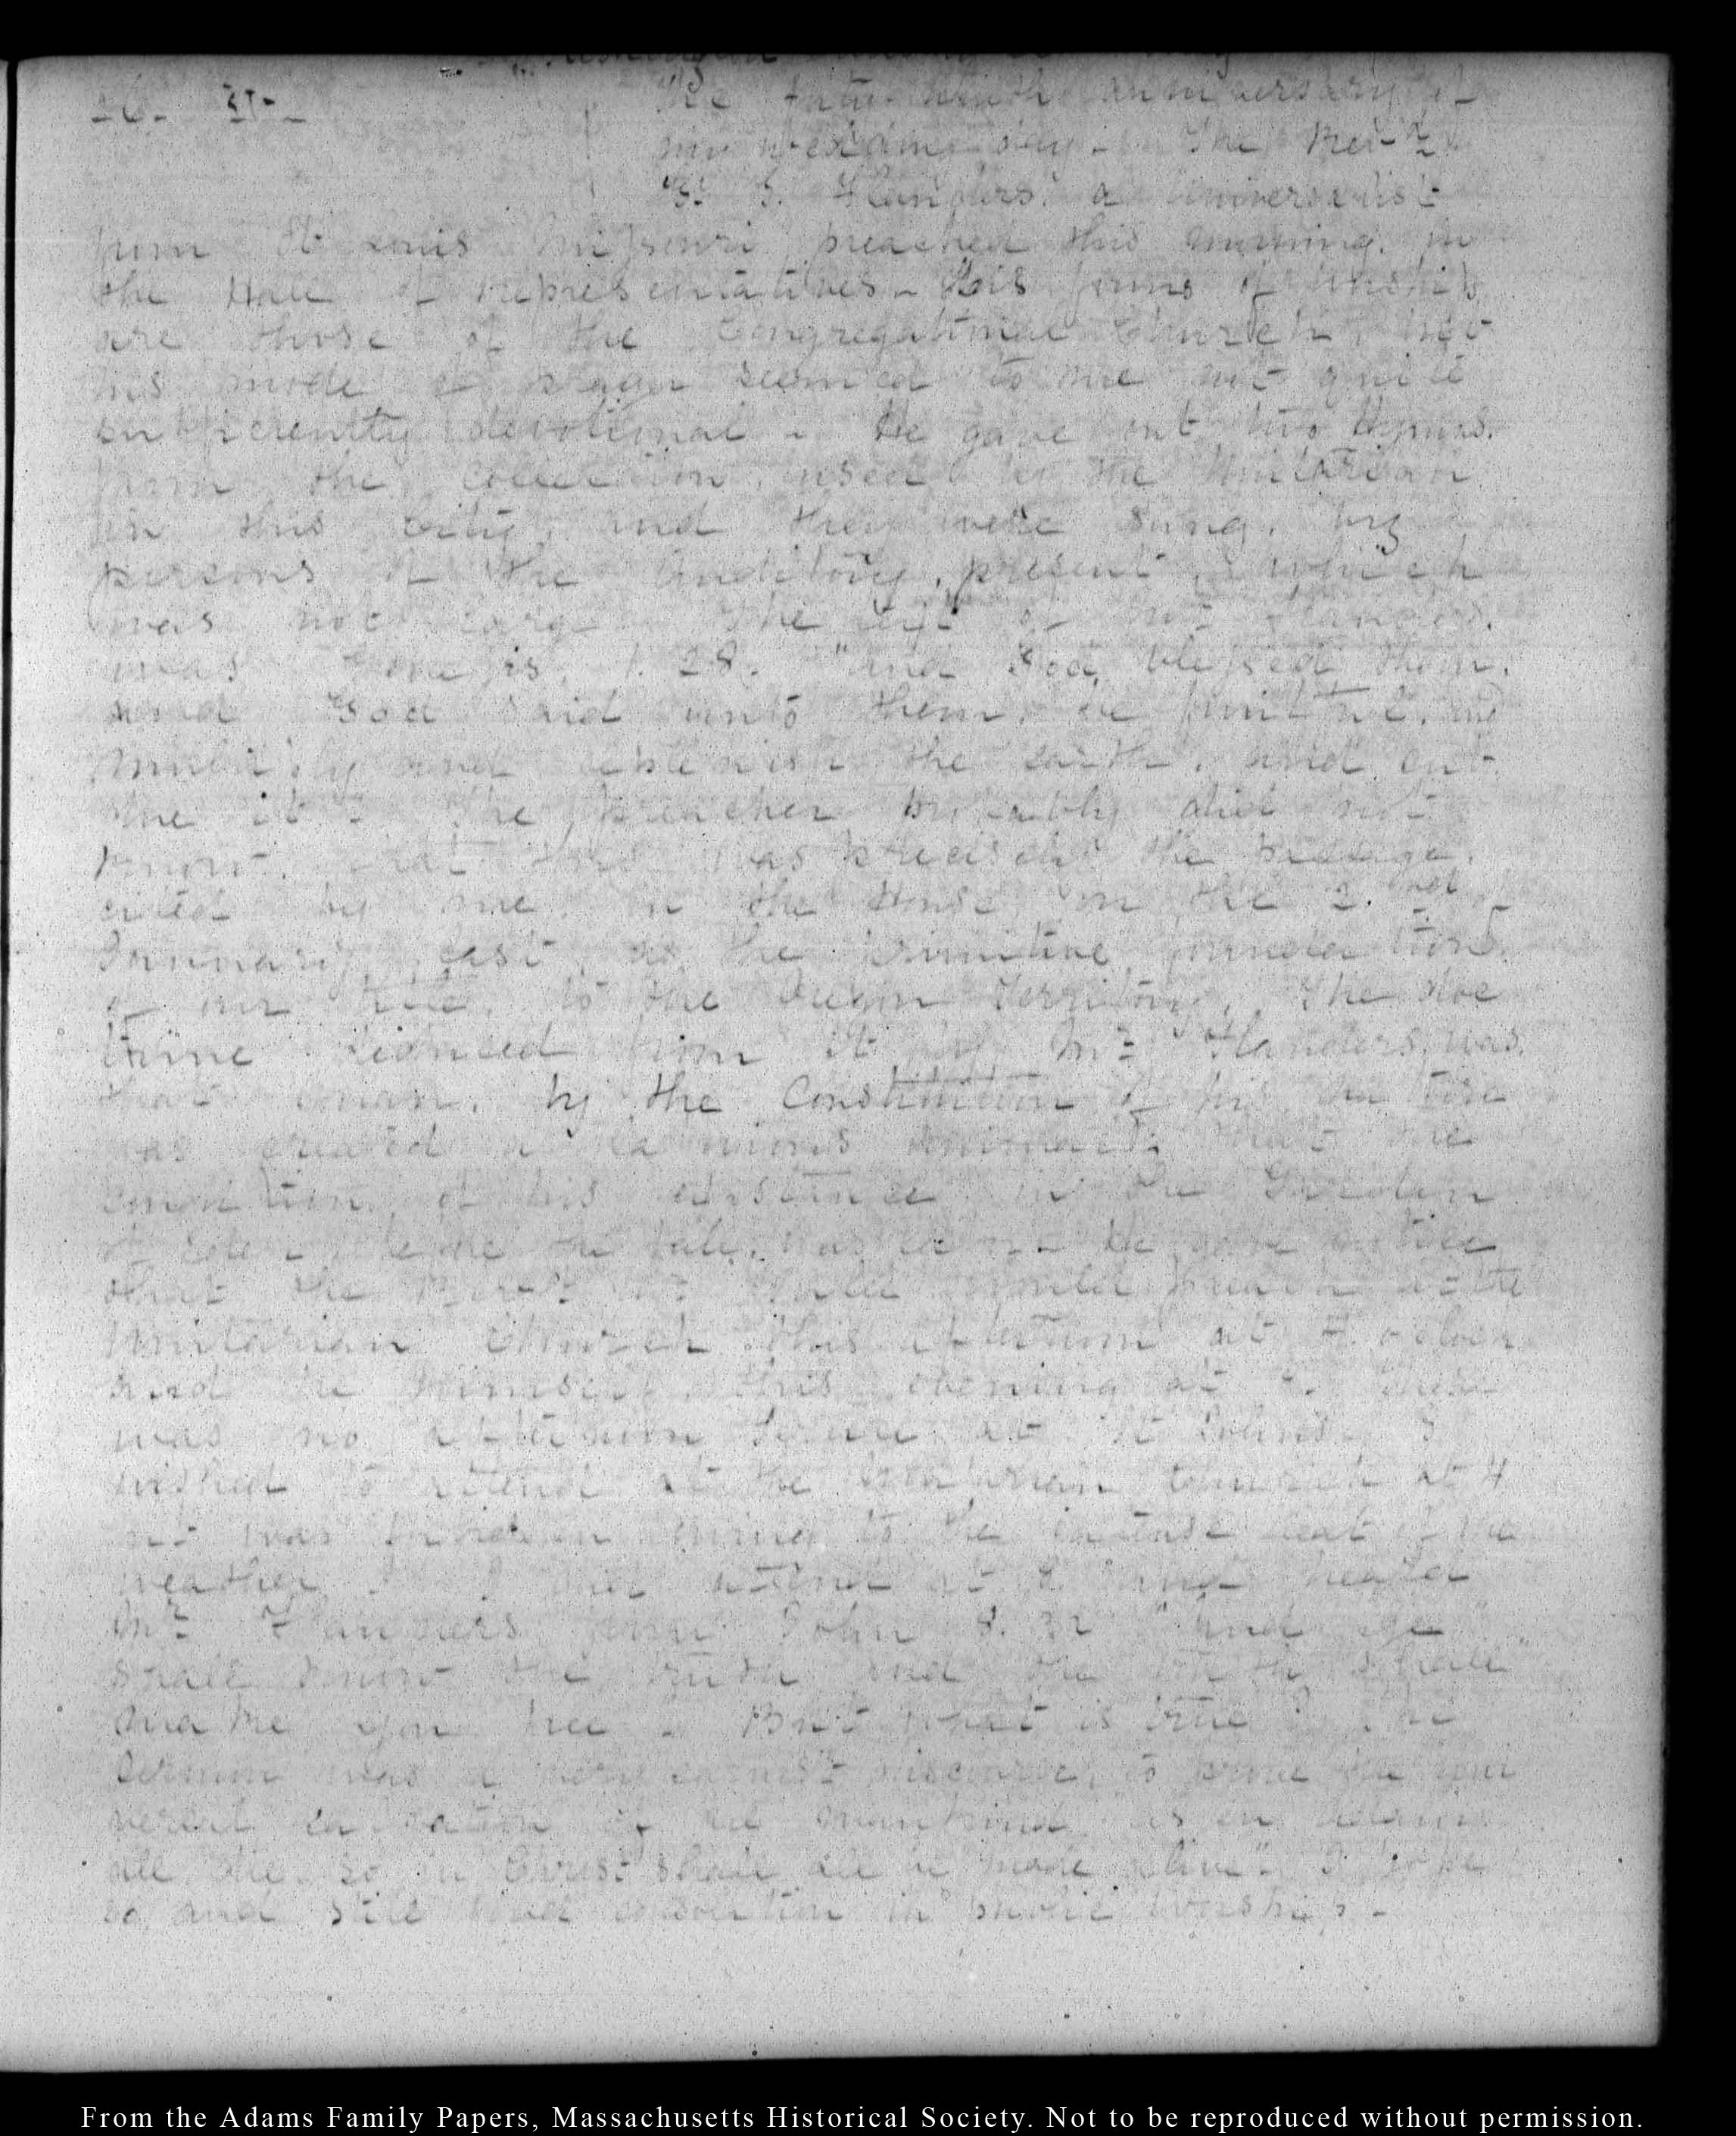 The forty ninth anniversary of
my wedding day. The Revd
Flanders, a Universalist
from St Louis Missouri preached this morning in
the Hall of Representatives. His forms of worship
are those of the Congregational Church, but
his mode of prayer seemed to me not quite
sufficiently devotional. He gave out two Hymns.
from the collection used by the Unitarian
in this City, and they were sung, by
persons of the Auditory, present, which
was not large. The text of Mr Flanders.
was Genesis, 1. 28. "And God, blessed them,
and God said unto them, be fruitful, and
multiply and replenish the earth, and sub
due it". The preacher probably did not
know, that this was precisely the passage,
cited by me, in the House on the 2.nd of
January last, as the primitive foundation.
of our title, to the Oregon Territory. The doc
trine deduced from it by Mr Flanders, was.
that man, by the Constitution of his nature
was created a laborious animal; that the
condition of his existence in the Garden
of Eden before the fall, was labor. He gave notice
that the Revd Mr would preach at the
Unitarian Church this afternoon at 4. o'clock
and he himself, this evening at 8. There
was no afternoon service at St Johns. I
wished to attend at the Unitarian Church at 4
but was forbidden owing to the intense heat of the
weather. I did attend at 8. and heard
Mr Flanders from John 8. 32 "And ye
shall know the truth and the truth shall
make you free". But what is true? The
sermon was a very earnest discourse, to prove the uni
versal salvation of all mankind. as in Adam
all die. so in Christ shall all be made alive". I hope
so and still find consolation in public worship.
From the Adams Family Papers, Massachusetts Historical Society. Not to be reproduced without permission.